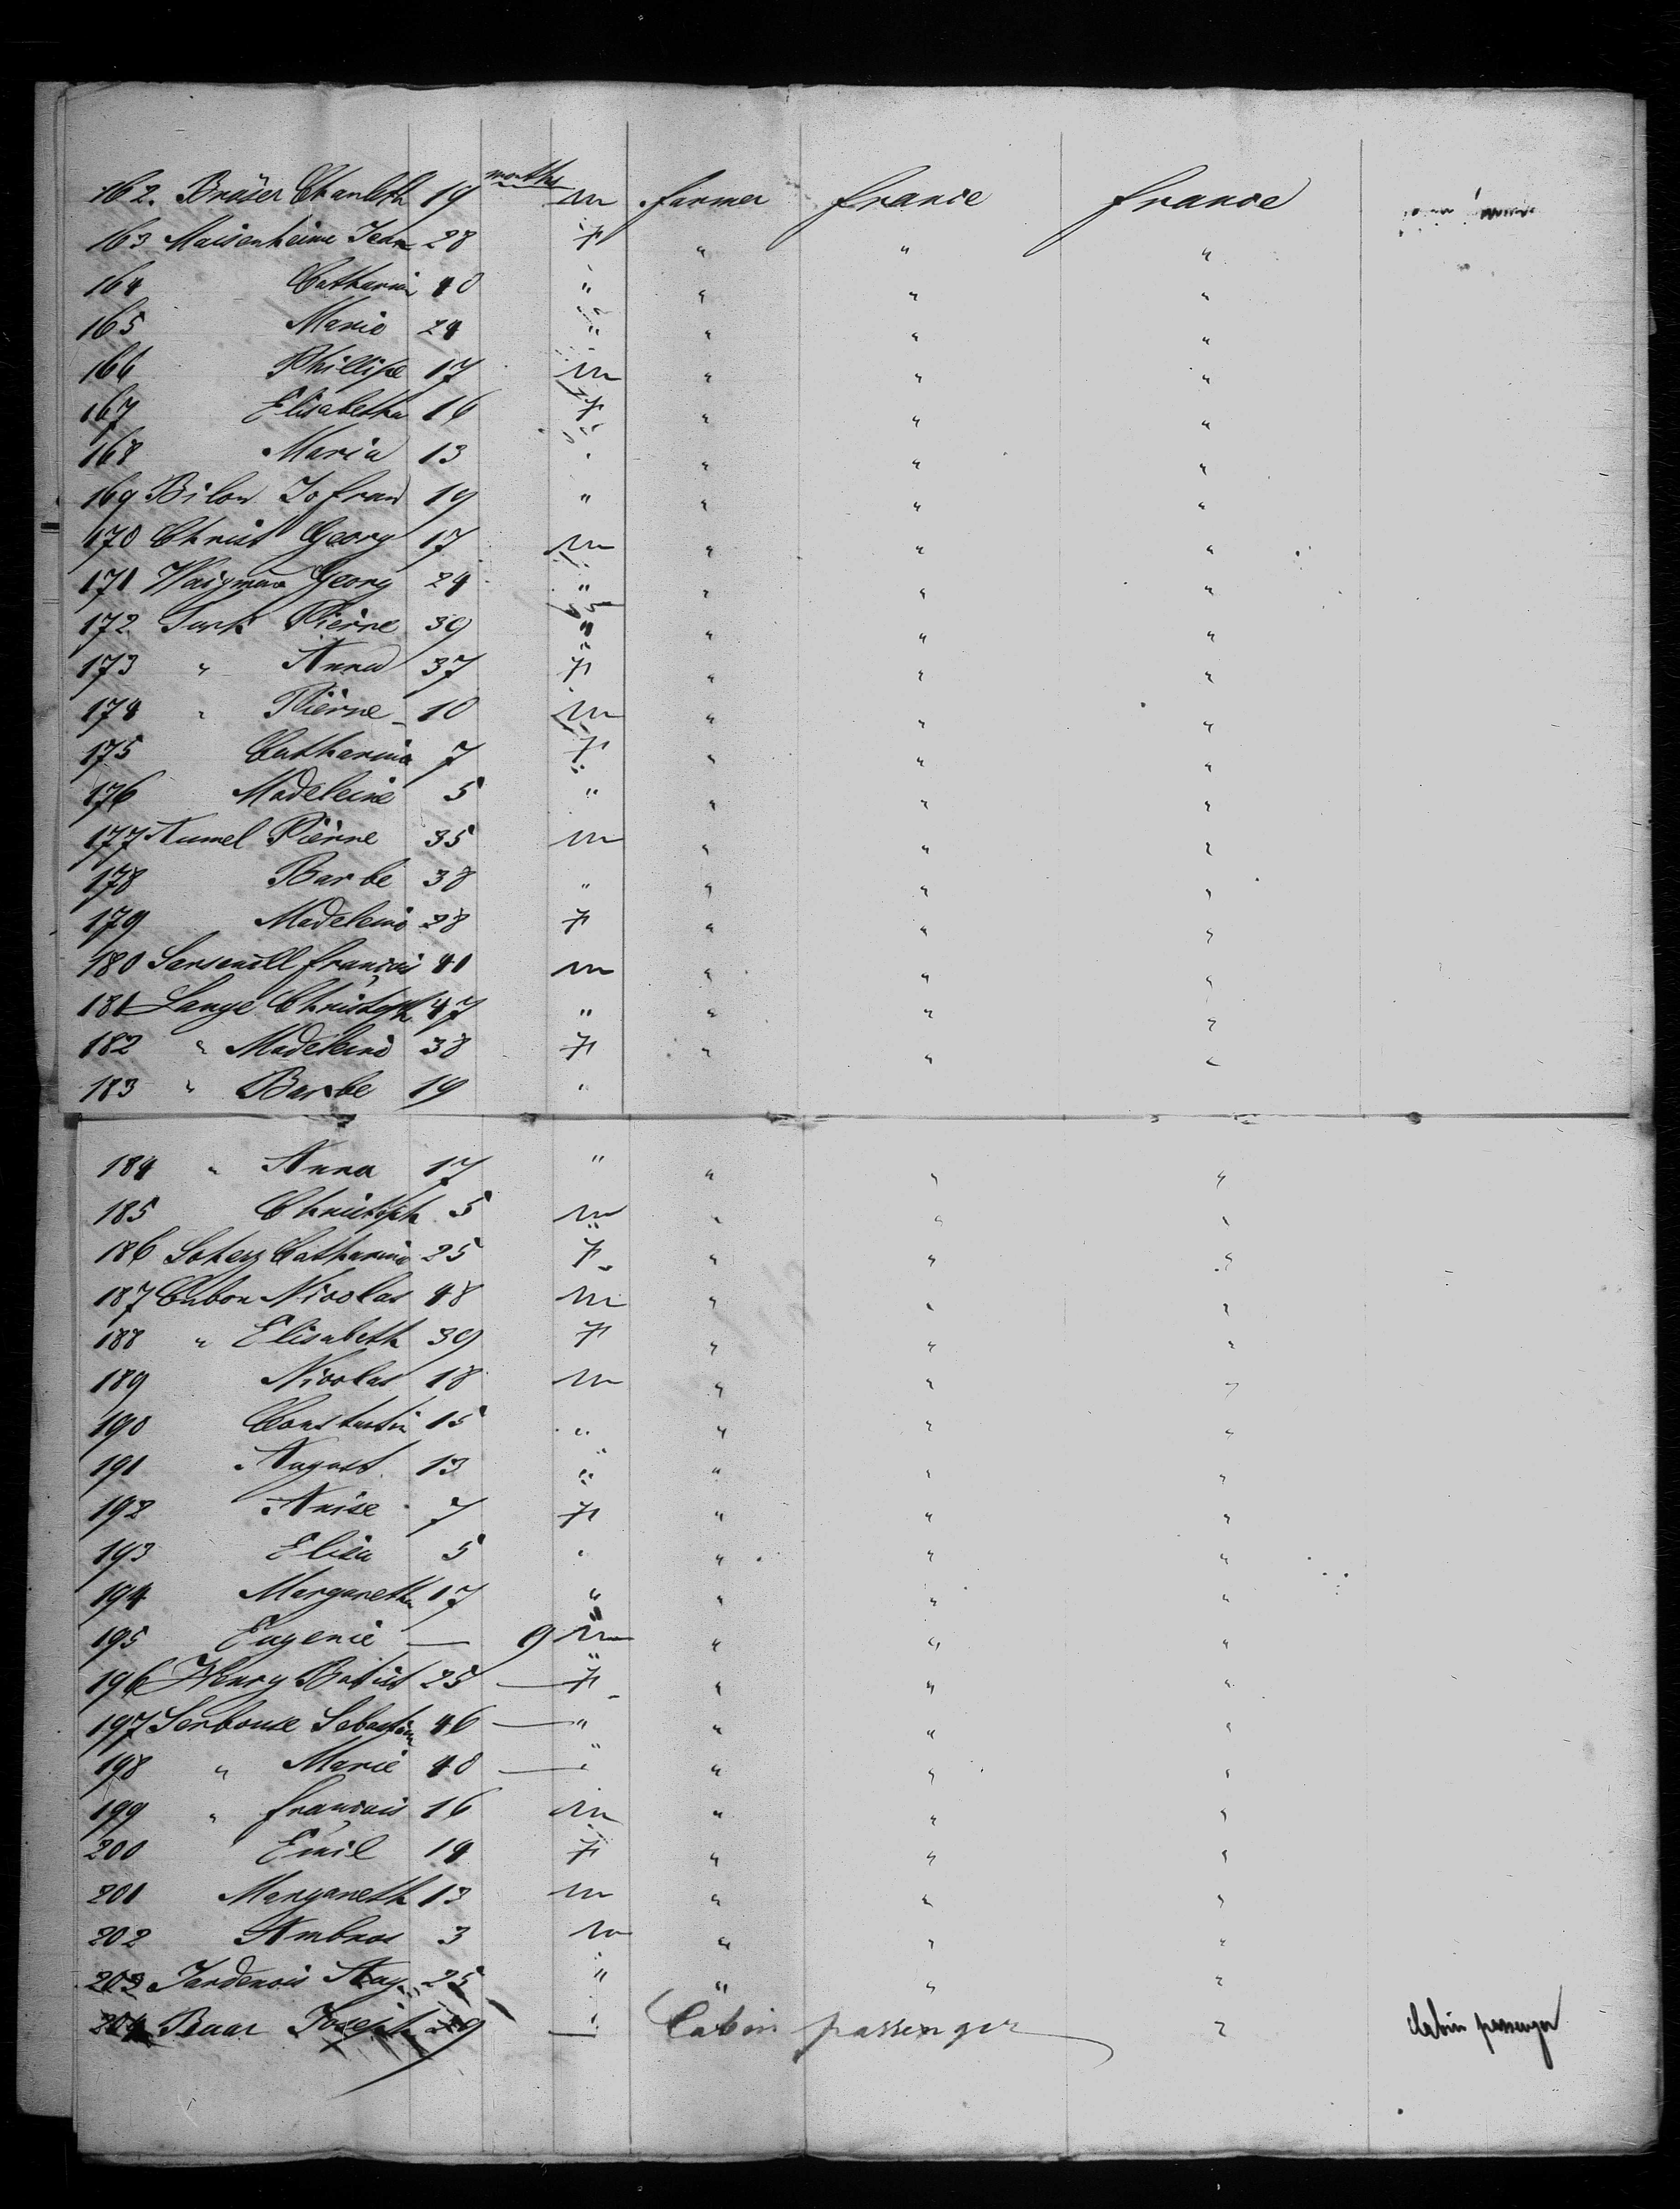 months
162. Bräser Charloth 19 m farmer france france
163 Maisenheime Jean 28 F " " "
164 Catharin 40 " " " "
165 Marie 24 " " " "
166 Phillipe 17 m " " "
167 Elisabetha 16 F " " "
168 Maria 13 " " " "
169 Bilon 19 " " " "
170 Christ Georg 17 m " " "
171 Georg 24 " " " "
172 Turk Pierre 39 " " " "
173 " Anna 37 F " " "
174 " Pierre 10 m " " "
175 Catharina 7 F " " "
176 Madeleine 5 " " " "
177 Aumel Pierre 35 m " " "
178 Barbe 38 " " " "
179 Madeleine 28 F " " "
180 français 41 m " " "
181 Lange Christoph 47 " " " "
182 " Madeleine 38 F " " "
183 " Barbe 19 "
184 " Anna 17 " " " "
185 Christoph 5 m " " "
186 Catharine 25 F " " "
187 Cubon Nicolas 48 m " " "
188 " Elisabeth 39 F " " "
189 Nicolas 18 m " " "
190 Constantin 15 " " " "
191 August 13 " " " "
192 Anise 7 F " " "
193 Elisa 5 " " " "
194 Margaretha 17 " " " "
195 Eugenie — 9 m " " "
196 Henry Batist 25 — F " " "
197 Serbouse Sebastian 46 — " " " "
198 " Marie 40 — " " " "
199 " français 16 m " " "
200 Emil 14 F " " "
201 Margareth 13 m " " "
202 Ambros 3 m " " "
203 Jardenois Aug. 25 " " " "
204 Joseph — " Cabin passenger " Cabin passenger